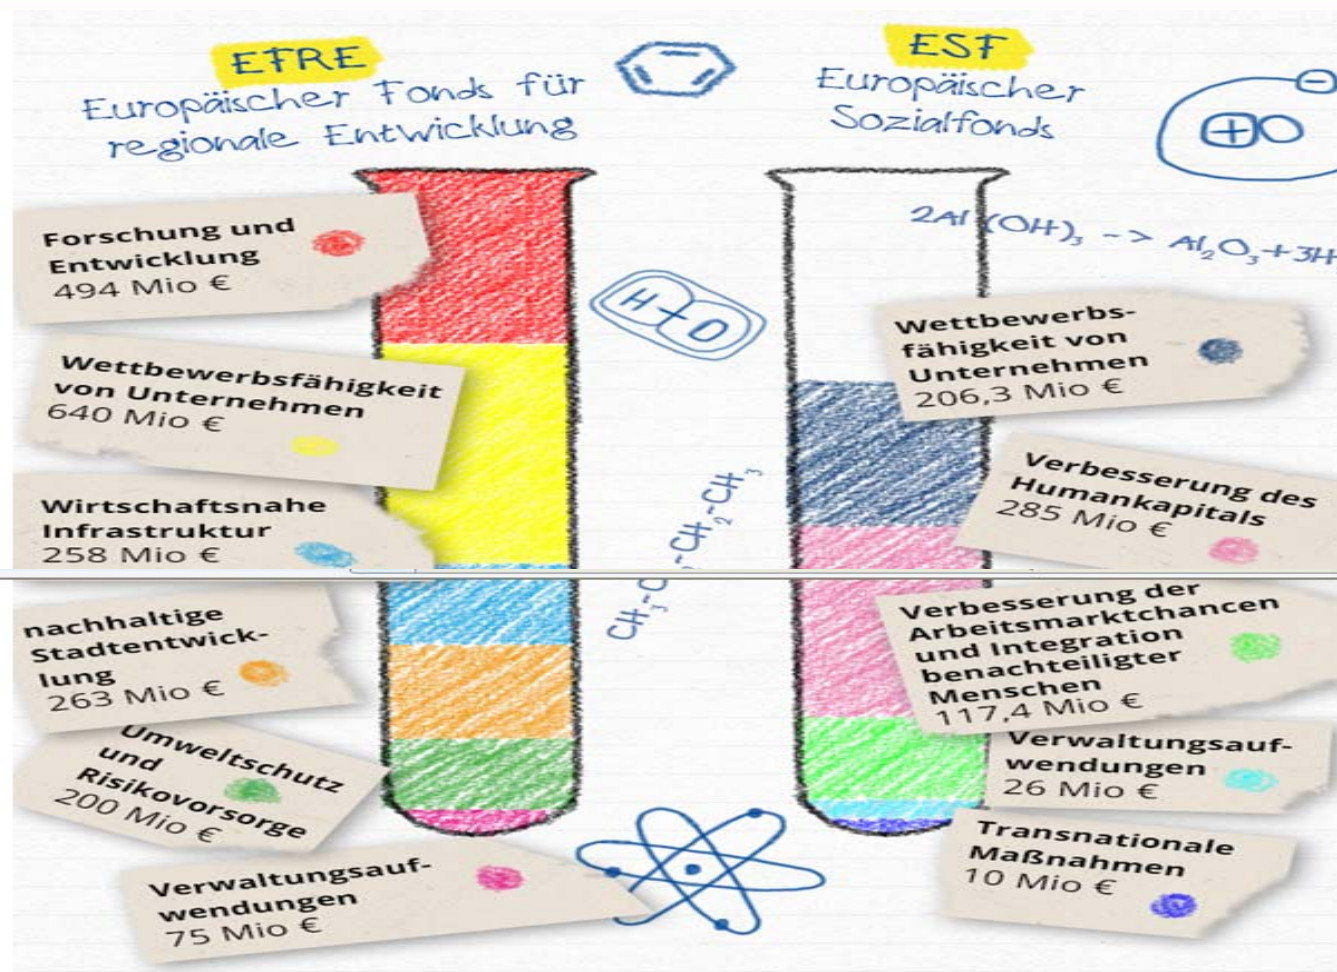 EFRE
Europäischer Fonds für
regionale Entwicklung
ESF
Europäischer
Sozialfonds
Forschung und
Entwicklung
494 Mio €
Wettbewerbsfähigkeit
von Unternehmen
640 Mio €
Wirtschaftsnahe
Infrastruktur
258 Mio €
nachhaltige
Stadtentwick-
lung
263 Mio €
Umweltschutz
und
Risikovorsorge
200 Mio €
Verwaltungsauf-
wendungen
75 Mio €
H-O
-CH₂-CH₃
CH₃-C
+
-
2Al(OH)₃ --> Al₂O₃+3H
Wettbewerbs-
fähigkeit von
Unternehmen
206,3 Mio €
Verbesserung des
Humankapitals
285 Mio €
Verbesserung der
Arbeitsmarktchancen
und Integration
benachteiligter
Menschen
117,4 Mio €
Verwaltungsauf-
wendungen
26 Mio €
Transnationale
Maßnahmen
10 Mio €